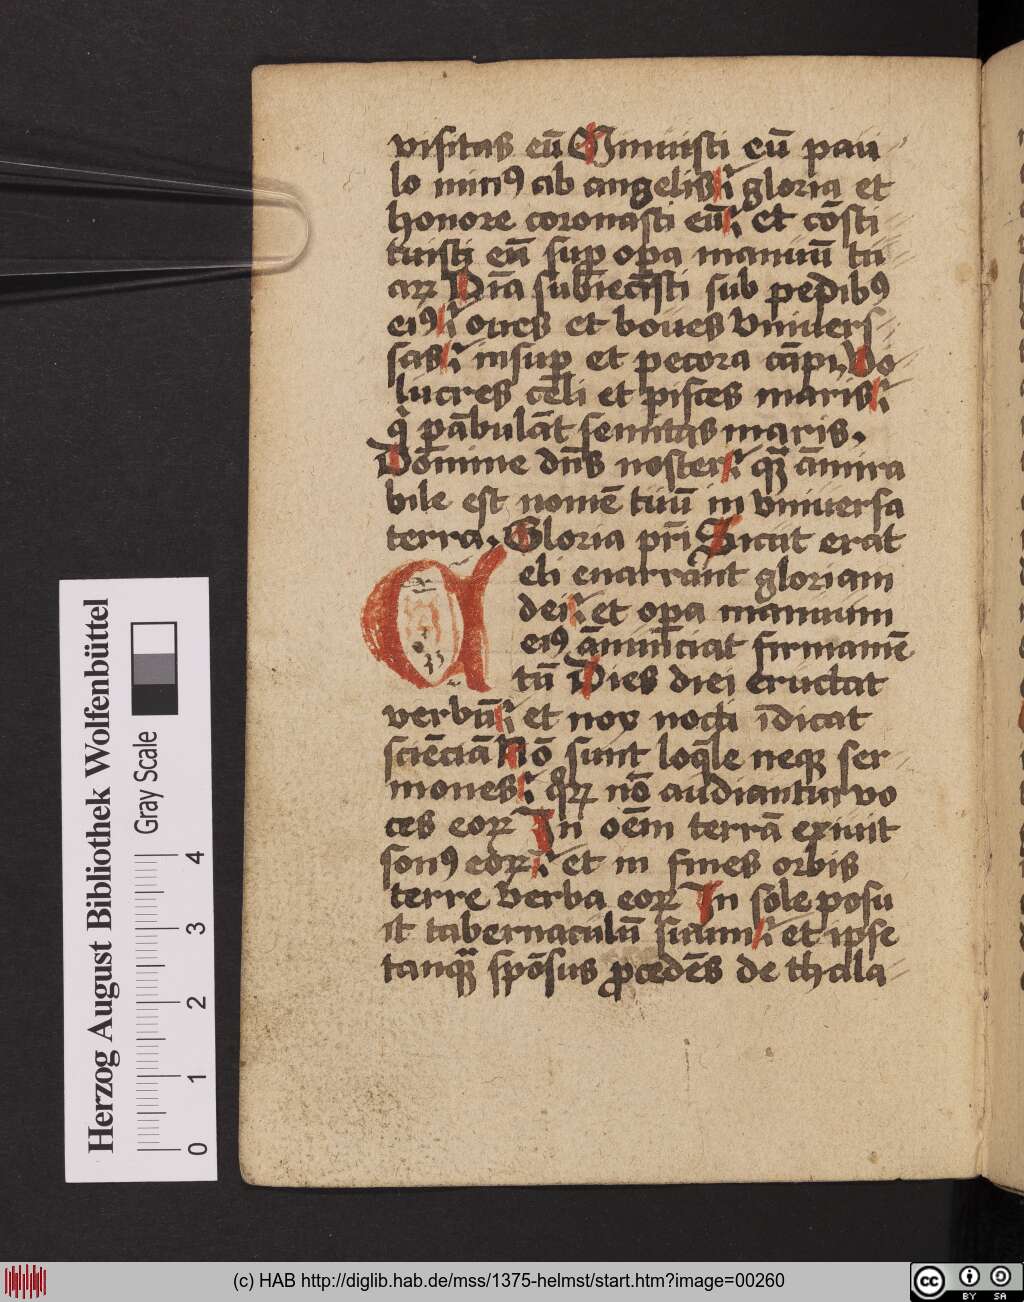 visitas eū Minuisti eū pau
lo minꝰ ab angelis gloria et
honore coronasti eū et cōsti
tuisti eū suꝑ oꝑa manuū tu
aꝝ Oīa subiecisti sub pedibꝰ
eiꝰ oues et boues vniuers
sas insuꝑ et pecora cāpi Vo
lucres celi et pisces maris
q̇ pābulāt semitas maris.
Domine dn̄s noster qꝫ āmira
bile est nomē tuū in vniuersa
terra. Gloria pr̄i Sicut erat
Celi enarrant gloriam
dei et oꝑa manuum
eiꝰ ānunciat firmamē
tū Dies diei eructat
verbū et nox nocti īdicat
sciēciā Nō sunt loqle neqꝫ ser
mones qꝝ nō audiantur vo
ces eoꝝ In oēm terrā exiuit
sonꝰ eoꝝ et in fines orbis
terre verba eoꝝ In sole posu
it tabernaculū suum et ipse
tanqꝫ spōsus ꝓcedēs de thala
Herzog August Bibliothek Wolfenbüttel
Gray Scale
0 1 2 3 4
(c) HAB http://diglib.hab.de/mss/1375-helmst/start.htm?image=00260
cc BY SA